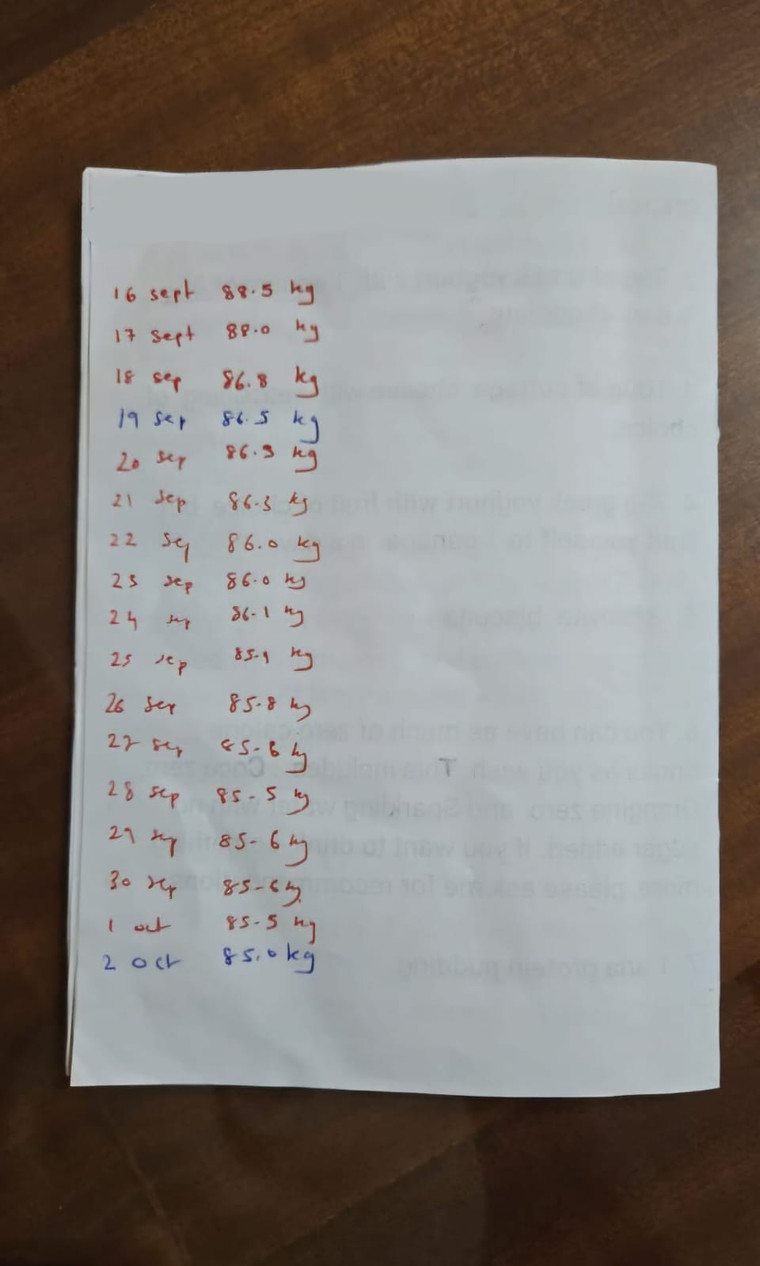 16 sept 88.5 kg
17 sept 88.0 kg
18 sep 86.8 kg
19 sep 86.5 kg
20 sep 86.3 kg
21 sep 86.3 kg
22 sep 86.0 kg
23 sep 86.0 kg
24 sep 86.1 kg
25 sep 85.9 kg
26 sep 85.8 kg
27 sep kg
28 sep 85-5 kg
29 sep 85-6 kg
30 sep 85-6 kg
1 oct 85-5 kg
2 oct 85.0 kg